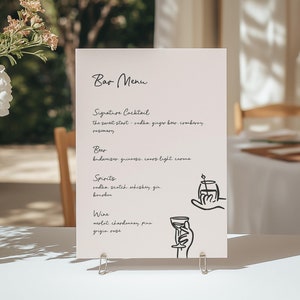 Bar Menu
Signature Cocktail
the sweet start - vodka, ginger beer, cranberry,
rosemary
Beer
budweiser, guinness, coors light, corona
Spirits
vodka, scotch, whiskey, gin,
bourbon
Wine
merlot, chardonnay, pino
grigio, rose